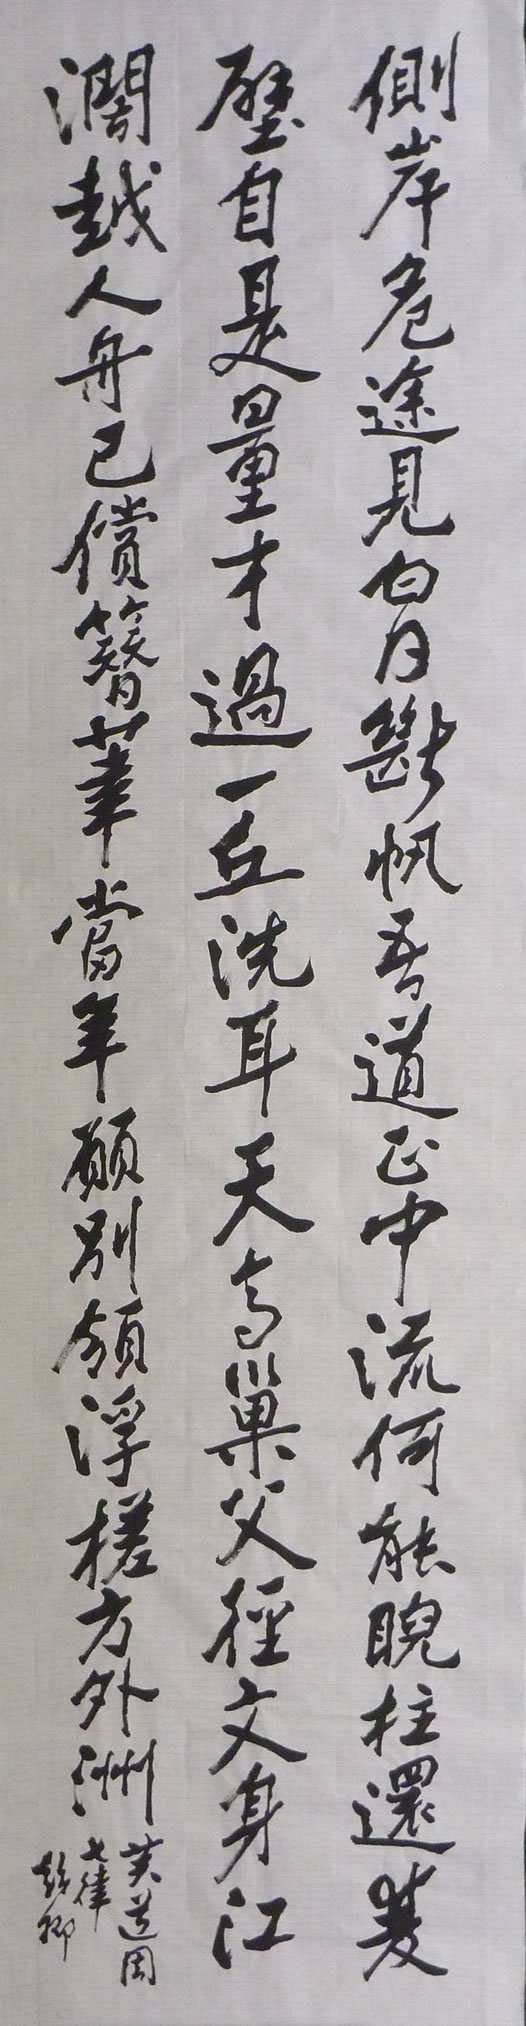 側岸危途見白月斷帆吾道正中流何能睨柱還
璧自是量才過一丘洗耳天高巢父徑文身江
濶越人舟已償簪筆當年願別領浮槎方外洲
黃道周
七律